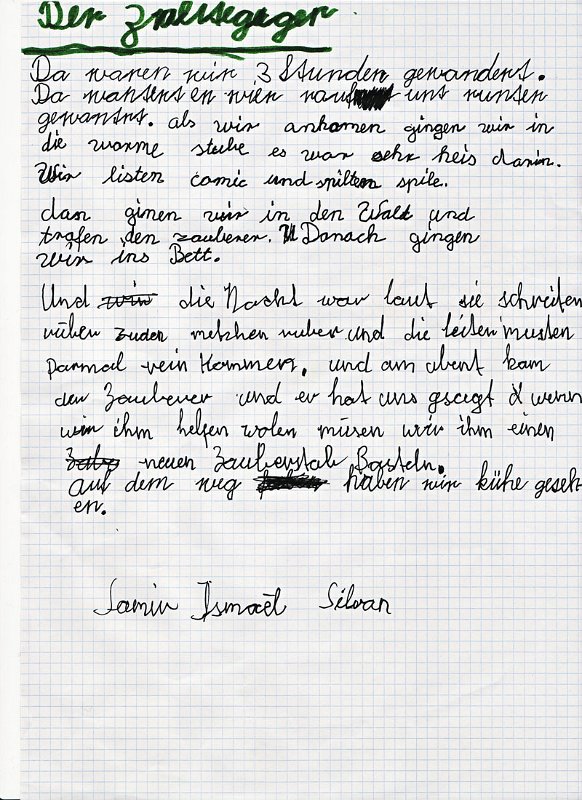 Der
Da waren wir 3 Stunden gewandert.
Da en wier rauf unt runter
gewantrt. als wir ankamen gingen wir in
die warme stube es war sehr heis darin.
Wir listen comic und spilten spile.
dan ginen wir in den Wald und
trafen den zauberer. Danach gingen
wir ins Bett.
Und die Nacht war laut sie schreiten
rüber zuden metchen rüber und die leiter musten
parmal rein kommen, und am abent kam
der Zauberer und er hat uns gesagt wenn
wir ihm helfen wolen müsen wir ihm einen
neuen Zauberstab Basteln.
auf dem weg haben wir kühe geseh
en.
Samir Ismaël Silvan